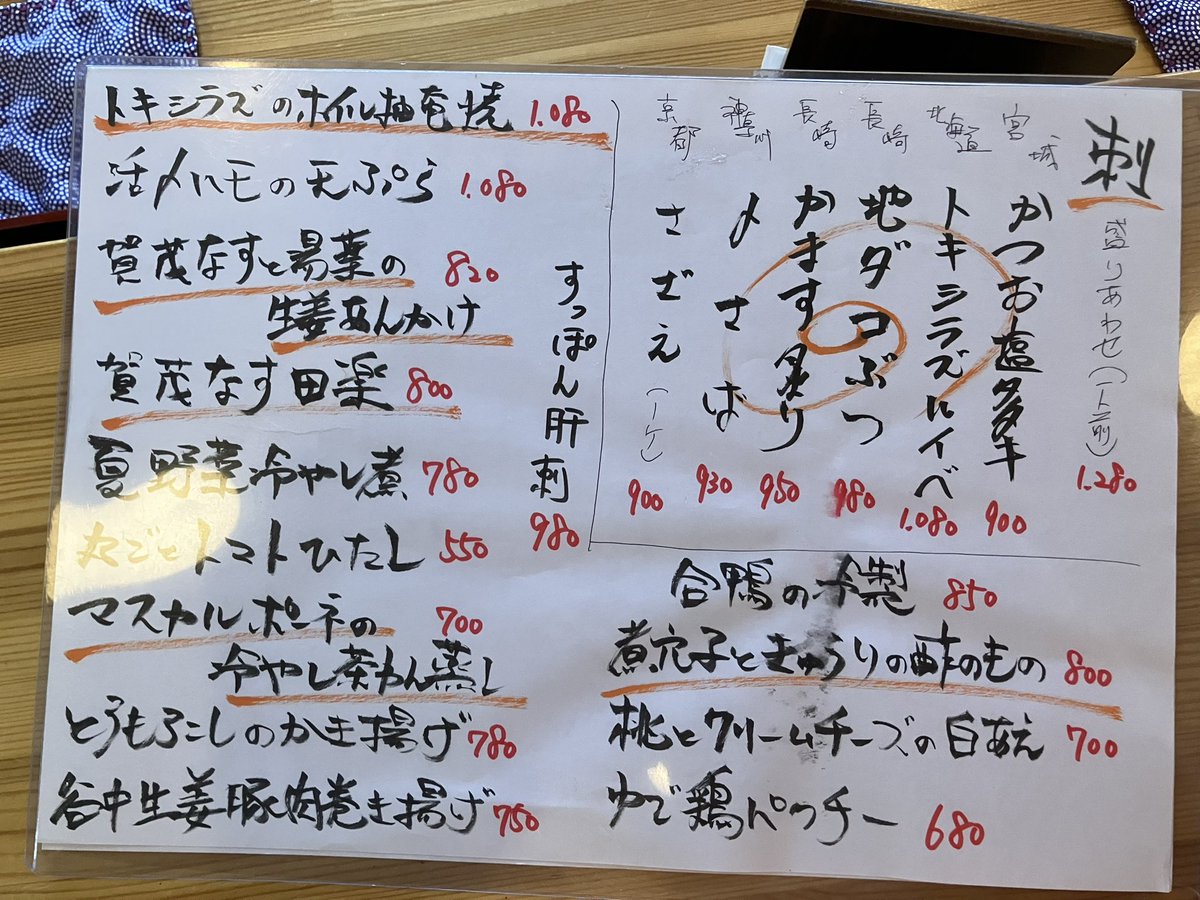 トキシラズのホイル柚奄焼 1.080
活〆ハモの天ぷら 1.080
賀茂なすと湯葉の 820
生姜あんかけ
賀茂なす田楽 800
夏野菜冷やし煮 780
丸ごとトマトひたし 550
マスカルポーネの 700
冷やし茶わん蒸し
とうもろこしのかき揚げ 780
谷中生姜豚肉巻き揚げ 750
すっぽん肝刺 980
刺
盛りあわせ(一人前) 1.280
宮城 かつお塩タタキ 900
北海道 トキシラズルイベ 1.080
長崎 地ダコぶつ 980
長崎 かます炙り 950
神奈川 〆さば 930
京都 さざえ(一ケ) 900
合鴨の冷製 850
煮穴子ときゅうりの酢のもの 800
桃とクリームチーズの白あえ 700
ゆで鶏パクチー 680